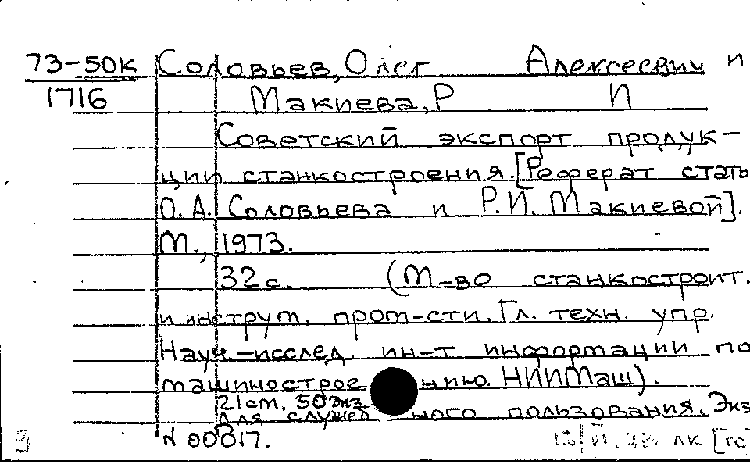 73-50к Соловьев, Олег Алексеевич и
1716 Макиева, Р И
Советский экспорт продук-
ции станкостроения. [Реферат стать
О.А. Соловьева и Р.И. Макиевой].
М., 1973.
32 с. (М-во станкостроит.
и инструм. пром-сти. Гл. техн. упр.
Науч.-исслед. ин-т информации по
машиностроению НИИМаш).
21 см. 50 экз.
Для служебного пользования. Экз
N 00017.